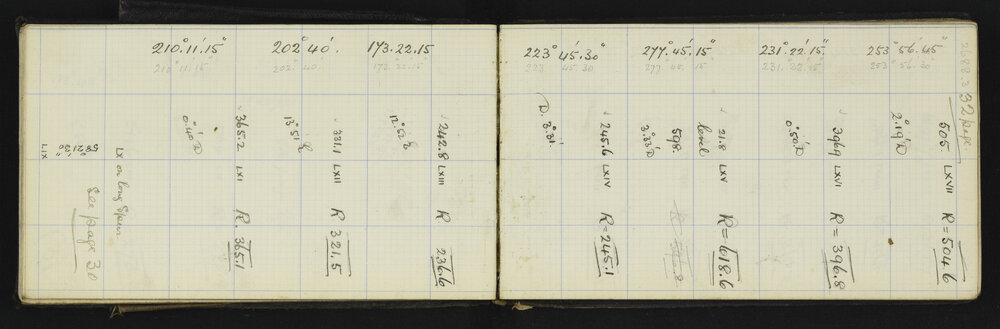 210° 11' 15"
202° 40'.
173.22.15
210° 11' 15"
202° 40'.
173.22.15
365.2 LXI R. 365.1
0.40 D
331.1 LXII R 321.5
13° 51'
242.8 LXIII R 236.6
12°.52'
LX on long Spur
See page 30
58° 21' 30"
LIX
223° 45' 30"
277° 45' 15"
231° 22' 15"
253° 56' 45"
223 45.30
277. 45. 15"
231. 22' 15"
253° 56' 30"
32 Page
505 LXVII R = 504.6
2.19' D
396.9 LXVI R = 396.8
0.50' D
21.8 LXV R = 618.6
level
598.
3°.33' D
245.6 LXIV R = 245.1
D. 3°.31'